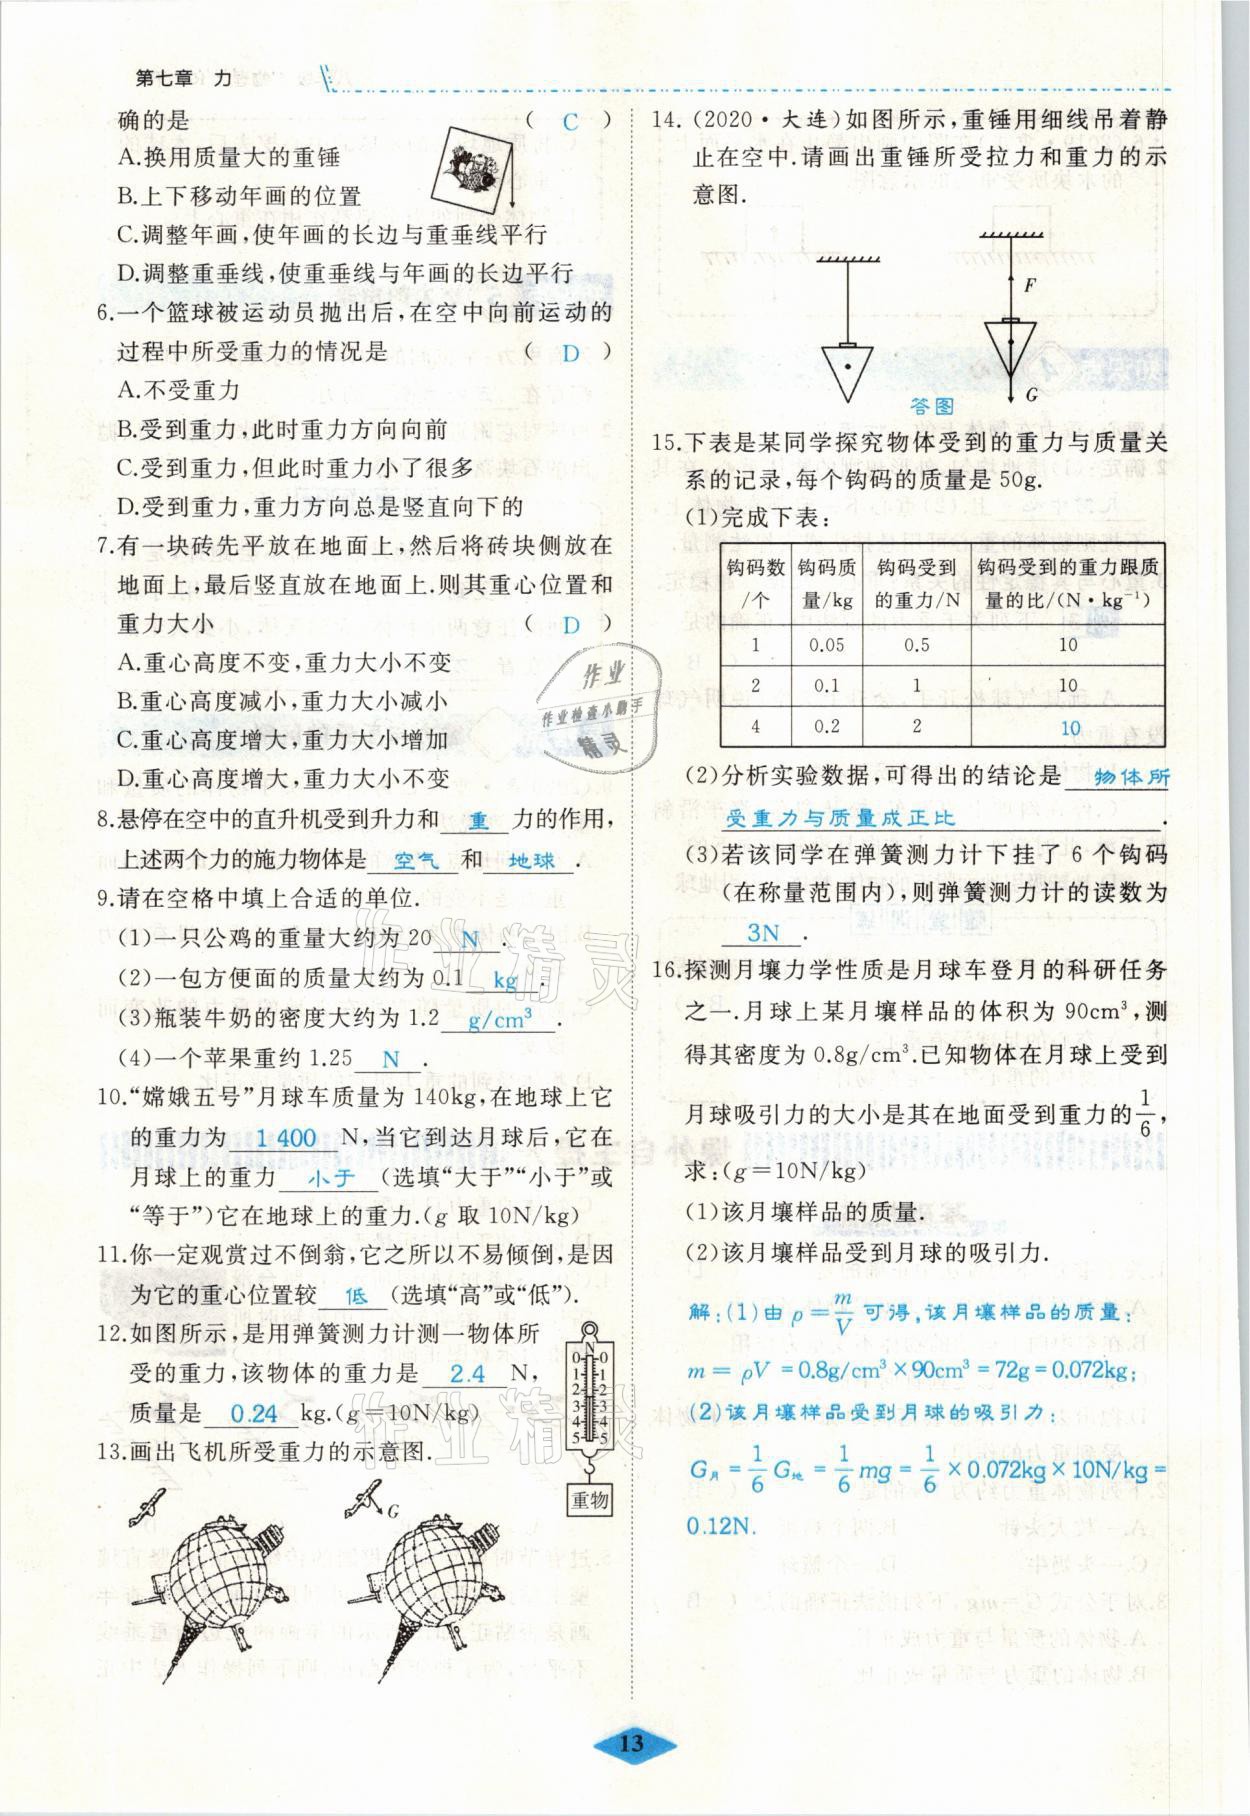 第七章 力
确的是 ( C )
A.换用质量大的重锤
B.上下移动年画的位置
C.调整年画,使年画的长边与重垂线平行
D.调整重垂线,使重垂线与年画的长边平行
6.一个篮球被运动员抛出后,在空中向前运动的
过程中所受重力的情况是 ( D )
A.不受重力
B.受到重力,此时重力方向向前
C.受到重力,但此时重力小了很多
D.受到重力,重力方向总是竖直向下的
7.有一块砖先平放在地面上,然后将砖块侧放在
地面上,最后竖直放在地面上.则其重心位置和
重力大小 ( D )
A.重心高度不变,重力大小不变
B.重心高度减小,重力大小减小
C.重心高度增大,重力大小增加
D.重心高度增大,重力大小不变
8.悬停在空中的直升机受到升力和 重 力的作用,
上述两个力的施力物体是 空气 和 地球 .
9.请在空格中填上合适的单位.
(1)一只公鸡的重量大约为20 N .
(2)一包方便面的质量大约为0.1 kg .
(3)瓶装牛奶的密度大约为1.2 g/cm³ .
(4)一个苹果重约1.25 N .
10.“嫦娥五号”月球车质量为140kg,在地球上它
的重力为 1400 N,当它到达月球后,它在
月球上的重力 小于 (选填“大于”“小于”或
“等于”)它在地球上的重力.(g取10N/kg)
11.你一定观赏过不倒翁,它之所以不易倾倒,是因
为它的重心位置较 低 (选填“高”或“低”).
12.如图所示,是用弹簧测力计测一物体所
受的重力,该物体的重力是 2.4 N,
质量是 0.24 kg.(g=10N/kg)
N
0 0
1 1
2 2
3 3
4 4
5 5
重物
13.画出飞机所受重力的示意图.
G
14.(2020·大连)如图所示,重锤用细线吊着静
止在空中.请画出重锤所受拉力和重力的示
意图.
F
G
答图
15.下表是某同学探究物体受到的重力与质量关
系的记录,每个钩码的质量是50g.
(1)完成下表:
钩码数 钩码质 钩码受到 钩码受到的重力跟质
/个 量/kg 的重力/N 量的比/(N·kg⁻¹)
1 0.05 0.5 10
2 0.1 1 10
4 0.2 2 10
(2)分析实验数据,可得出的结论是 物体所
受重力与质量成正比 .
(3)若该同学在弹簧测力计下挂了6个钩码
(在称量范围内),则弹簧测力计的读数为
3N .
16.探测月壤力学性质是月球车登月的科研任务
之一.月球上某月壤样品的体积为90cm³,测
得其密度为0.8g/cm³.已知物体在月球上受到
月球吸引力的大小是其在地面受到重力的1/6,
求:(g=10N/kg)
(1)该月壤样品的质量.
(2)该月壤样品受到月球的吸引力.
解:(1)由ρ=m/V可得,该月壤样品的质量:
m=ρV=0.8g/cm³×90cm³=72g=0.072kg;
(2)该月壤样品受到月球的吸引力:
G月=1/6G地=1/6mg=1/6×0.072kg×10N/kg=
0.12N.
作业
作业检查小助手
精灵
作业精灵
作业精灵
13